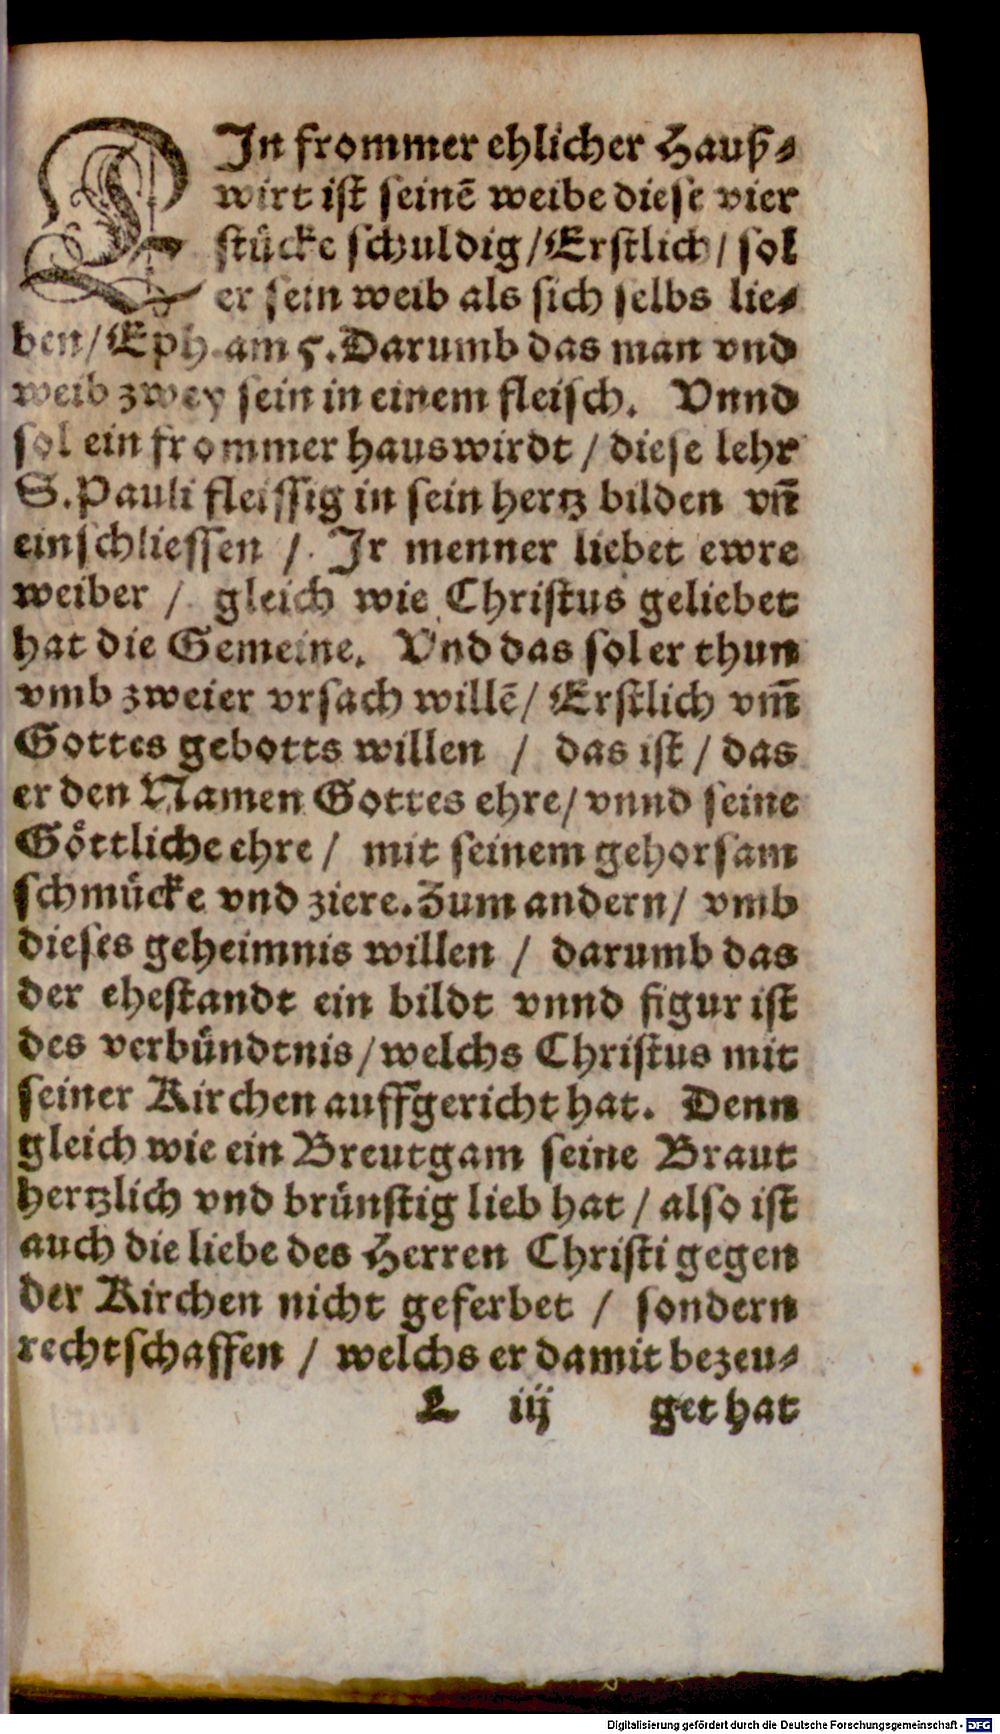 EJn frommer ehlicher Hauß⸗
wirt ist seinē weibe diese vier
stücke schuldig/Erstlich/ sol
er sein weib als sich selbs lie⸗
ben/Eph. am 5. Darumb das man vnd
weib zwey sein in einem fleisch. Vnnd
sol ein frommer hauswirdt / diese lehr
S. Pauli fleissig in sein hertz bilden vn̄
einschliessen / Jr menner liebet ewre
weiber / gleich wie Christus geliebet
hat die Gemeine. Vnd das sol er thun
vmb zweier vrsach willē/ Erstlich vm̄
Gottes gebotts willen / das ist / das
er den Namen Gottes ehre/ vnnd seine
Göttliche ehre / mit seinem gehorsam
schmücke vnd ziere. Zum andern/ vmb
dieses geheimnis willen / darumb das
der ehestandt ein bildt vnnd figur ist
des verbündtnis/welchs Christus mit
seiner Kirchen auffgericht hat. Denn
gleich wie ein Breutgam seine Braut
hertzlich vnd brünstig lieb hat / also ist
auch die liebe des Herren Christi gegen
der Kirchen nicht geferbet / sondern
rechtschaffen / welchs er damit bezeu⸗
L iij get hat
Digitalisierung gefördert durch die Deutsche Forschungsgemeinschaft - DFG